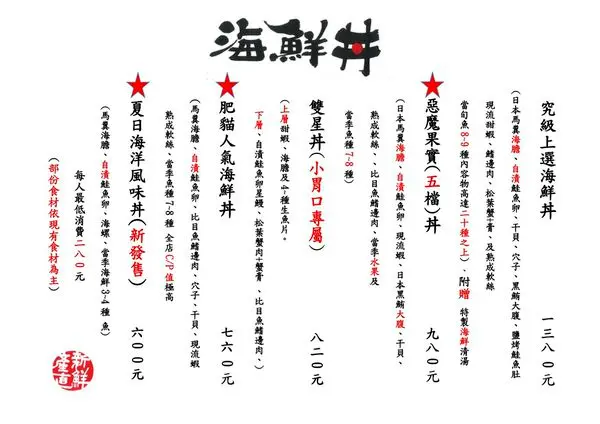 海鮮丼
究級上選海鮮丼 一三八0元
(日本馬糞海膽、自漬鮭魚卵、干貝、穴子、黑鮪大腹、鹽烤鮭魚肚
現流甜蝦、鰭邊肉、松葉蟹+膏、及熟成軟絲
當旬魚8-9種內容物高達二十種之上)、附贈 特製海鮮清湯
惡魔果實(五檔)丼 九八0元
(日本馬糞海膽、自漬鮭魚卵、現流蝦、日本黑鮪大腹、干貝、
熟成軟絲、、比目魚鰭邊肉、當季水果及
當季魚種7-8種)
雙星丼(小胃口專屬) 八二0元
(上層甜蝦、海膽及4-種生魚片。
下層、自漬鮭魚卵星鰻、松葉蟹肉+蟹膏、比目魚鰭邊肉、)
肥貓人氣海鮮丼 七六0元
(馬糞海膽、自漬鮭魚卵、比目魚鰭邊肉、穴子、干貝、現流蝦
熟成軟絲、當季魚種7-8種 全店C/P值極高
夏日海洋風味丼(新發售) 六00元
(馬糞海膽、自漬鮭魚卵、海螺、當季海鮮3-4種魚)
每人最低消費二八0元
(部份食材依現有食材為主)
新鮮
產直